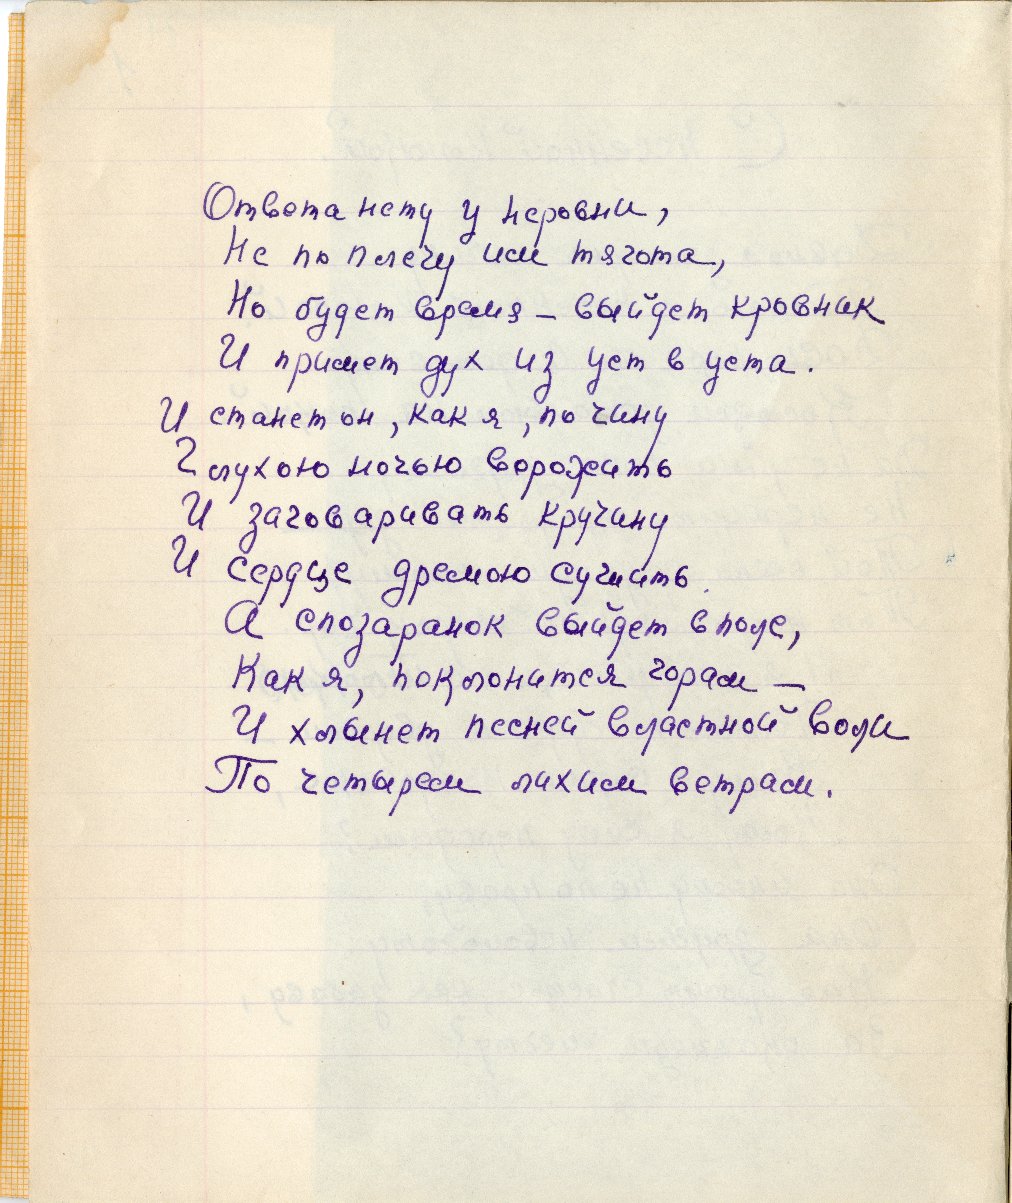 Ответа нету у неровни,
Не по плечу им тягота,
Но будет время – выйдет кровник
И примет дух из уст в уста.
И станет он, как я, по чину
Глухою ночью ворожить
И заговаривать кручину
И сердце дремою сучить.
А спозаранок выйдет в поле,
Как я, поклонится горам –
И хлынет песней властной воли
По четырем лихим ветрам.